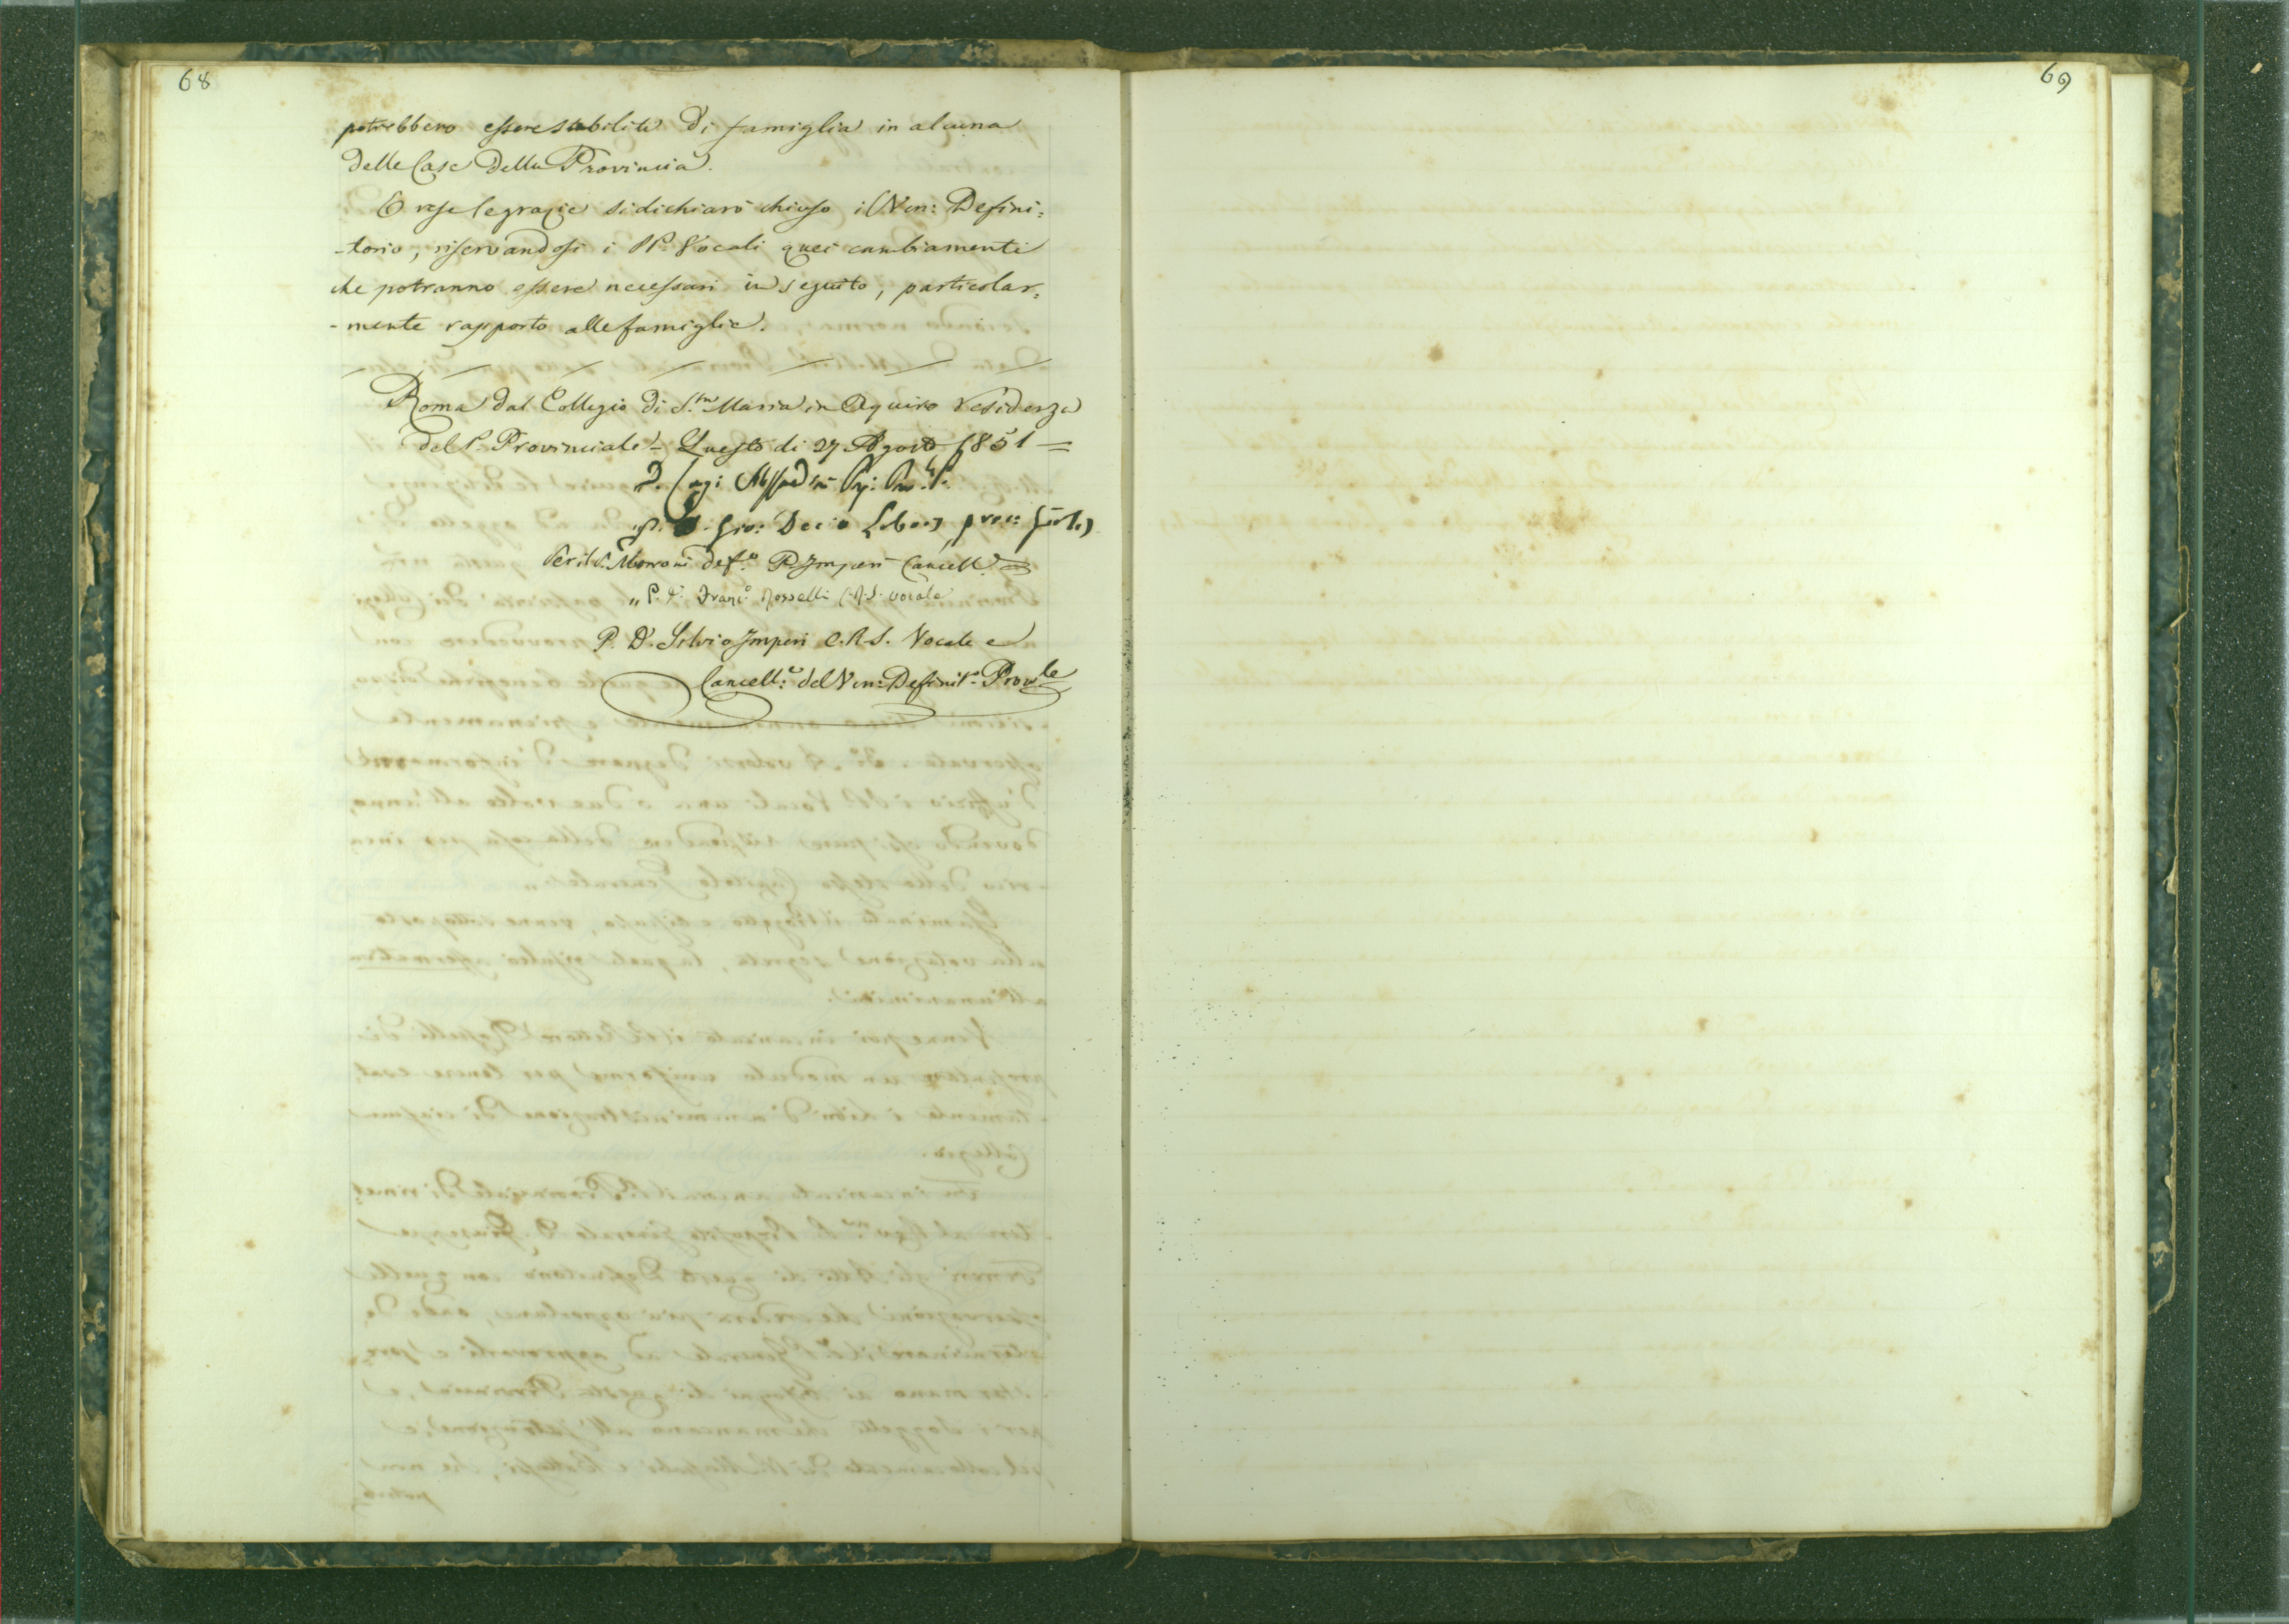 68
potrebbero essere stabiliti di famiglia in alcuna
delle Case della Provincia.
E rese le grazie si dichiarò chiuso il Ven: Defini:
-torio, riservandosi i PP. Vocali quei cambiamenti
che potranno essere necessari in seguito, particolar:
-mente rapporto alle famiglie.
Roma dal Collegio di S.ta Maria in Aquiro residenza
del P. Provinciale - Questo di 27 Agosto 1851 =
D. Luigi
P. D. Gio: Decio Libois
Per il P. Morroni def.o P. Imperi Cancell.e
" P. D. Franc.o Rosselli C.R.S. vocale
P. D. Silvio Imperi C.R.S. Vocale e
Cancell:e del Ven: Definit.o Prov.le
69